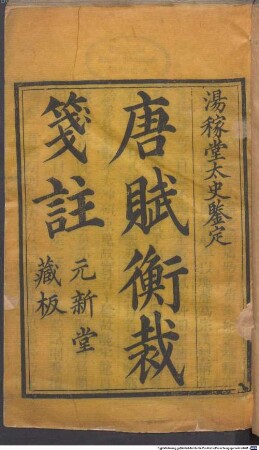 湯稼堂太史鑒定
唐賦衡裁
箋註
元新堂
藏板